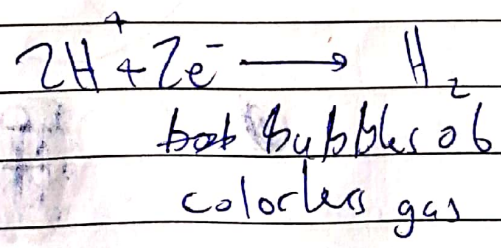 2H⁺ + 2e⁻ ⟶ H₂
bubbles ob
colorless gas